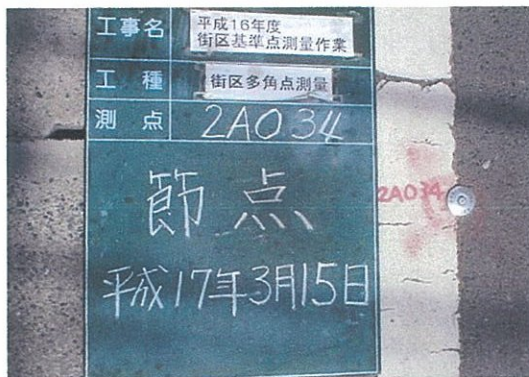 工事名 平成16年度
街区基準点測量作業
工種 街区多角点測量
測点 2A034
節点
平成17年3月15日
2A034